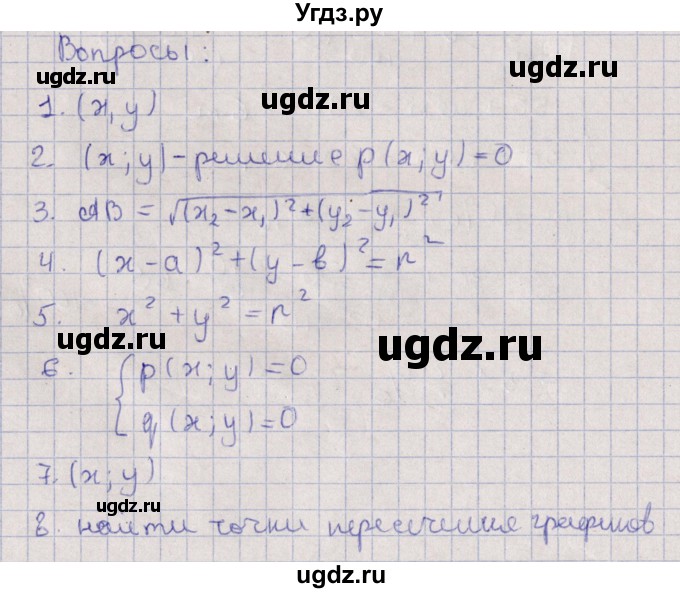 Угдз.ру
Вопросы:
ugdz.ru
ugdz.ru
ugdz.ru
1. (x, y)
2. (x; y) - решение p(x; y) = 0
ugdz.ru
ugdz.ru
3. AB = √(x₂ - x₁)² + (y₂ - y₁)²
4. (x - a)² + (y - b)² = r²
5. x² + y² = r²
ugdz.ru
ugdz.ru
6. { p(x; y) = 0
q(x; y) = 0
7. (x; y)
ugdz.ru
8. найти точки пересечения графиков
ugdz.ru